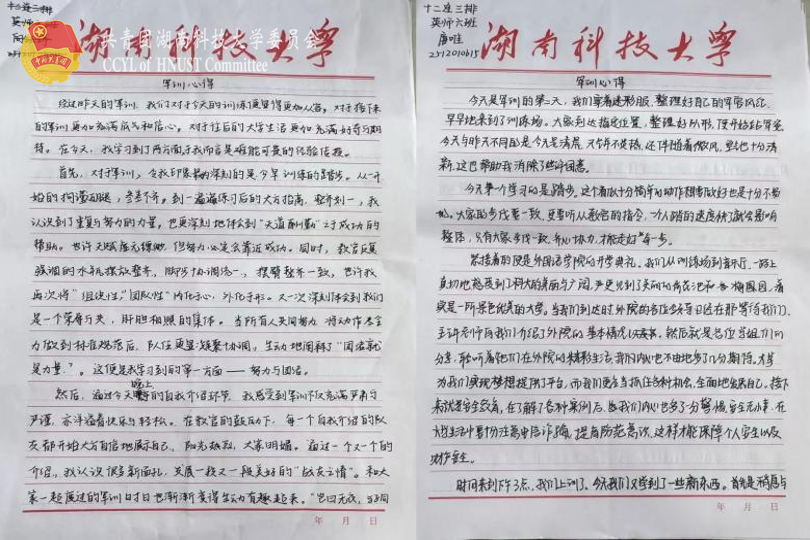 十二连三排
英师
湖南科技大学
共青团湖南科技大学委员会
CCYL of HNUST Committee
军训心得
经过昨天的军训，我们对于今天的训练更显得更加从容，对于接下来
的军训更加充满底气和信心，对于往后的大学生活更加充满好奇与期
待。在今天，我学习到了两方面于我而言是难能可贵的经验传授。
首先，对于军训，令我印象最为深刻的是今早训练的踏步。从一开
始的拘谨动腿，参差不齐。到一遍遍练习后的大方抬高，整齐划一，我
认识到了重复与努力的力量，也更深刻地体会到“天道酬勤”之于成功的
帮助。也许天赋虚无缥缈，但努力一定是会靠近成功。同时，教官反复
强调的水瓶摆放整齐，脚步协调统一，摆臂整齐一致，也许我
再次将“组织性”，“团队性”内化于心，外化于形。又一次深刻体会到我们
是一个荣辱与共，肝胆相照的集体。当所有人共同努力，将动作尽全
力做到标准规范后，队伍更显凝聚协调，生动地阐释了“团结就
是力量”。这便是我学习到的第一方面——努力与团结。
然后，通过今天晚上的自我介绍环节，我感受到军训不仅充满严肃与
严谨，亦洋溢着快乐与轻松。在教官的鼓励下，每一个自我介绍的队
友都开始大方自信地展示自己，阳光热烈，大家明媚。通过一个又一个的
介绍，我认识很多新面孔，发展一段又一段美好的“战友之情”。和大
家一起度过的军训日时日也渐渐变得生动有趣起来。“岂曰无衣，与子同
年 月 日
十二连三排
英师六班
唐唯
2312010615
湖南科技大学
军训心得
今天是军训的第二天，我们穿着迷彩服，整理好自己的军容风纪，
早早地来到了训练场。大家到达指定位置，整理好队形，便开始站军姿，
今天与昨天不同的是今天是清晨，天气不是热，还伴随着微风，空气也十分清
新，这也帮助我消除了些许困意。
今天第一个学习的是踏步。这个看似十分简单的动作想要做好也是十分不易
的。大家的步伐要一致，更要听从教官的指令，一个人踏的速度快了就会影响
整活，只有大家步伐一致、齐心协力，才能走好每一步。
紧接着的便是外国语学院的开学典礼。我们从训练场到音乐厅，一路上
真切地感受到了科大的美丽与广阔，
实是一所景色优美的大学。当我们到达时外院的各位领导已在那等待我们，
老师向我们介绍了外院的基本情况
分享，聆听着他们在外院的精彩生活，我的内心也不由地多了几分期待。大学
为我们实现梦想提供了平台，而我们更应当抓住各种机会，全面地发展自己。接下
来就是安全教育，在了解了各种案例后，我们内心也多了一分警惕，安全无小事，在
大学生活中要十分注意电信诈骗，提高防范意识，这样才能保障个人安全以及
财产安全。
时间来到下午3点，我们上训了。今天我们又学到了一些新东西。首先是稍息与
年 月 日